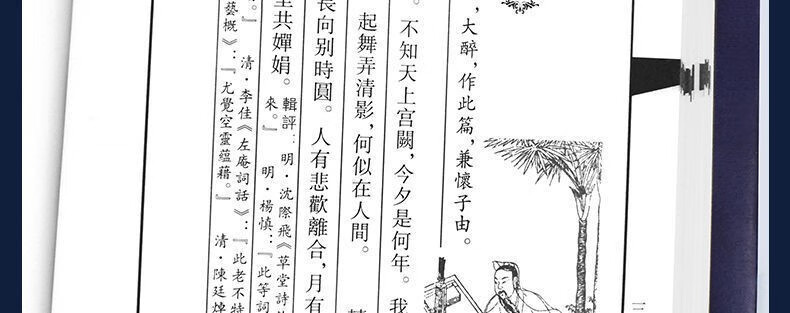 ，大醉，作此篇，兼懷子由。
。不知天上宫闕，今夕是何年。我
起舞弄清影，何似在人間。
長向别時圓。人有悲歡離合，月有
里共嬋娟。輯評：明·沈際飛《草堂詩
來。』 明·楊慎：『此等詞
。』 清·李佳《左庵詞話》：『此老不特
藝概》：『尤覺空靈藴藉。』 清·陳廷焯